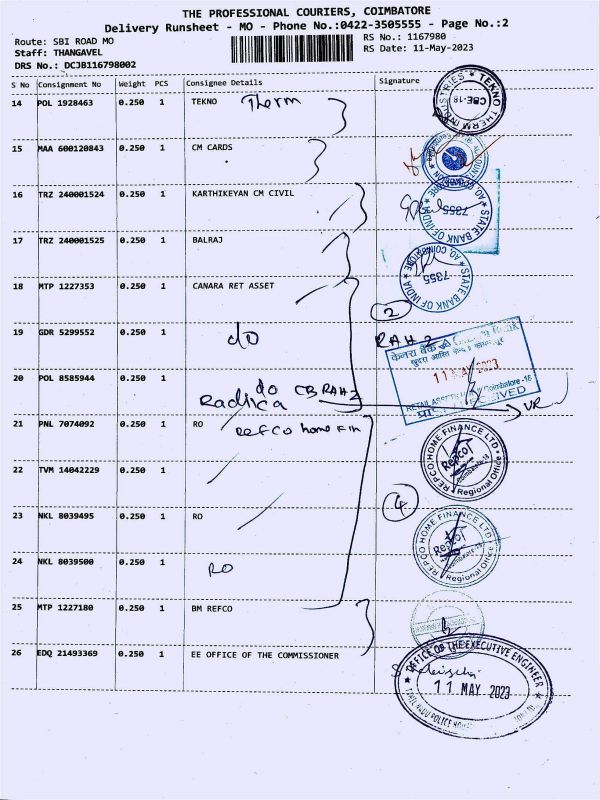 THE PROFESSIONAL COURIERS, COIMBATORE
Delivery Runsheet - MO - Phone No.:0422-3505555 - Page No.:2
Route: SBI ROAD MO
RS No.: 1167980
Staff: THANGAVEL
RS Date: 11-May-2023
DRS No.: DCJB116798002
S No Consignment No Weight PCS Consignee Details Signature
14 POL 1928463 0.250 1 TEKNO Therm
TEKNO THERM INDUSTRIES
CBE-18
15 MAA 600120843 0.250 1 CM CARDS
16 TRZ 240001524 0.250 1 KARTHIKEYAN CM CIVIL
STATE BANK OF INDIA
AO, COIMBATORE
7355
17 TRZ 240001525 0.250 1 BALRAJ
STATE BANK OF INDIA
AO, COIMBATORE
7355
18 MTP 1227353 0.250 1 CANARA RET ASSET
2
19 GDR 5299552 0.250 1 do RAH 2
केनरा बैंक
11 MAY 2023
20 POL 8585944 0.250 1 do CB RAH 2
Radhica
RETAIL ASSET Coimbatore -18
RECEIVED
21 PNL 7074092 0.250 1 RO
Refco home Fin
REPCO HOME FINANCE LTD
Repco
Coimbatore-18
Regional Office
22 TVM 14042229 0.250 1
23 NKL 8039495 0.250 1 RO
4
REPCO HOME FINANCE LTD
Repco
Coimbatore-18
Regional Office
24 NKL 8039500 0.250 1 RO
25 MTP 1227180 0.250 1 BM REFCO
26 EDQ 21493369 0.250 1 EE OFFICE OF THE COMMISSIONER
OFFICE OF THE EXECUTIVE ENGINEER
11 MAY 2023
TAMIL NADU POLICE HOUSING